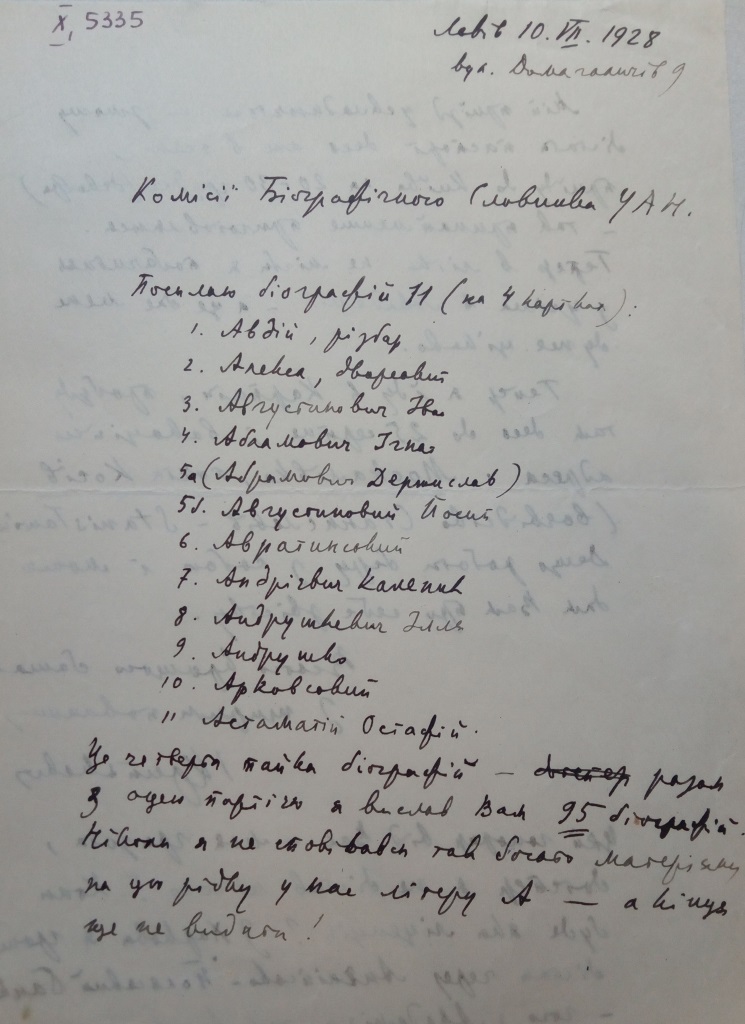 X, 5335
Львів 10. VII. 1928
вул. Домагаличів 9
Комісії Біографічного Словника УАН.
Посилаю біографій 11 (на 4 картках):
1. Авдій, різбар
2. Алекса,
3. Августинович Іван
4. Абламович Ігнат
5а (Абрамович Держислав)
5б. Августиновий Йосип
6. Авратинсовий
7. Андрієвич Каленик
8. Андрушкевич Ілля
9. Андрушко
10. Арковсовий
11 Астаматій Остафій.
Це четверта пайка біографій — разом
з оцею порцією я вислав Вам 95 біографій.
Ніколи я не сподівався так богато матеріялу
на цю рідку у нас літеру А — а кінця
ще не видати!